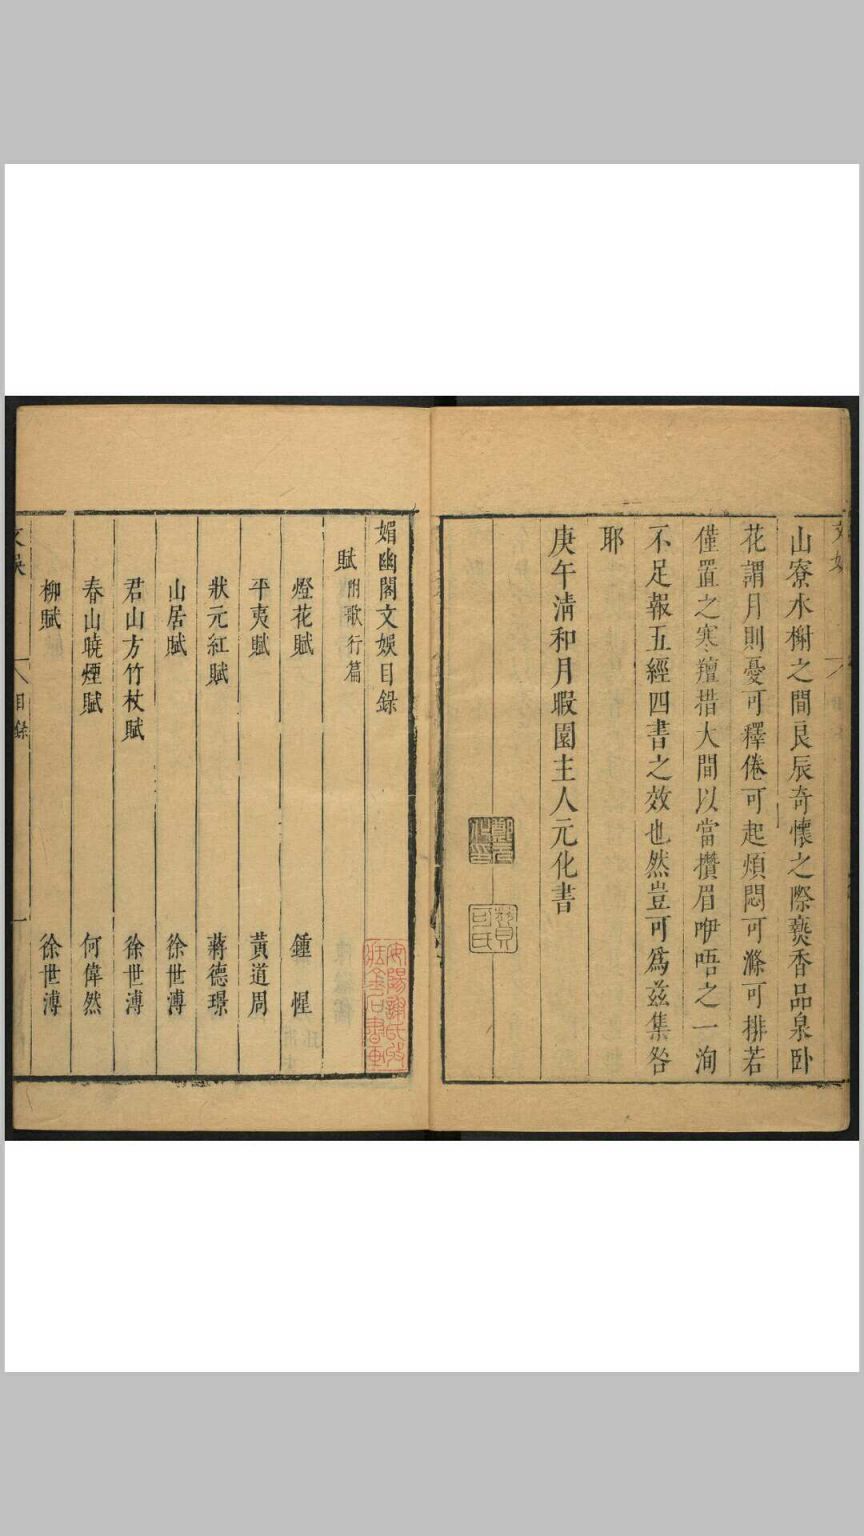 山寮水榭之間良辰奇懷之際爇香品泉臥
花謂月則憂可釋倦可起煩悶可滌可排若
僅置之寒羶措大間以當攢眉咿唔之一洵
不足報五經四書之效也然豈可爲茲集咎
耶
庚午淸和月暇園主人元化書
媚幽閣文娛目錄
賦 附歌行篇
燈花賦 鍾惺
平夷賦 黃道周
狀元紅賦 蔣德璟
山居賦 徐世溥
君山方竹杖賦 徐世溥
春山曉煙賦 何偉然
柳賦 徐世溥
文娛 目錄 一